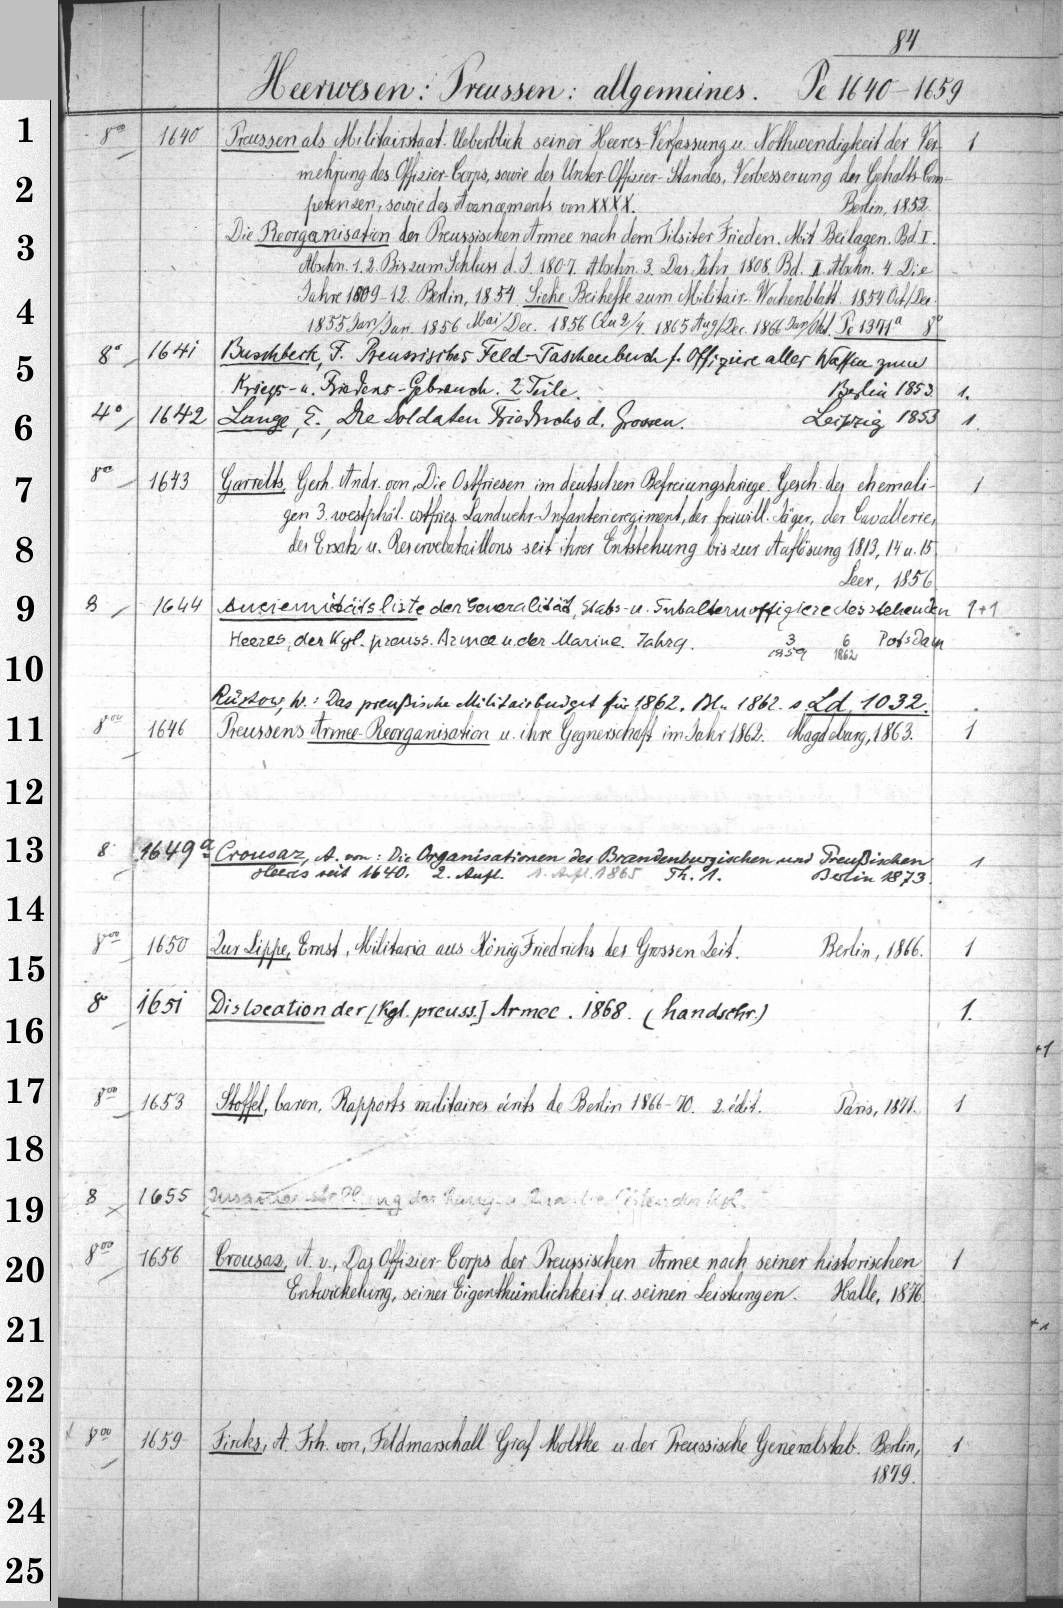 84
Heerwesen: Preussen: allgemeines. Pe 1640-1659
1
8vo 1640 Preussen als Militairstaat. Ueberblick seiner Heeres-Verfassung u. Nothwendigkeit der Ver- 1
2
mehrung des Offizier-Corps, sowie des Unter-Offizier-Standes, Verbesserung der Gehalts-Com-
petenzen, sowie des Avancements von XXXX. Berlin, 1852.
3
Die Reorganisation der Preussischen Armee nach dem Tilsiter Frieden. Mit Beilagen. Bd. I.
Abschn. 1.2. Bis zum Schluss d. J. 1807. Abschn. 3. Das Jahr 1808. Bd. II. Abschn. 4. Die
4
Jahre 1809-12. Berlin, 1854. Siehe Beihefte zum Militair-Wochenblatt. 1854 Oct/Dec.
1855 Jan/Jun. 1856 Mai/Dec. 1856 1865 Aug/Dec. 1866 Jan/Okt. Pe 1371a 8o
5
8o 1641 Buschbeck, F. Preussisches Feld-Taschenbuch f. Offiziere aller Waffen zum
Kriegs- u. Friedens-Gebrauch. 2 Teile. Berlin 1853. 1.
6
4o 1642 Lange, E., Die Soldaten Friedrichs d. Grossen. Leipzig 1853 1.
7
8vo 1643 Garrelts, Gerh. Andr. von, Die Ostfriesen im deutschen Befreiungskriege. Gesch. des ehemali- 1
gen 3. westphäl. ostfries. Landwehr-Infanterieregiment, der freiwill. Jäger, der Cavallerie,
8
des Ersatz u. Reservebataillons seit ihrer Entstehung bis zur Auflösung 1813, 14 u. 15.
Leer, 1856
9
8 1644 Anciennitätsliste der Generalität, Stabs- u. Subalternoffiziere des stehenden 1+1
Heeres, der Kgl. preuss. Armee u. der Marine. Jahrg. 3 1859 6 1862 Potsdam
10
Rüstow, W.: Das preußische Militairbudget für 1862. Bln 1862. s Ld 1032.
11
8vo 1646 Preussens Armee-Reorganisation u. ihre Gegnerschaft im Jahr 1862. Magdeburg, 1863. 1
12
13
8 1649a Crousaz, A. von: Die Organisationen des Brandenburgischen und Preußischen 1
Heeres seit 1640. 2. Aufl. 1. Aufl. 1865 Th. 1. Berlin 1873.
14
8vo 1650 Zur Lippe, Ernst, Militaria aus König Friedrichs des Grossen Zeit. Berlin, 1866. 1
15
8 1651 Dislocation der [Kgl. preuss.] Armee. 1868. (handschr.) 1.
16
+1
17
8vo 1653 Stoffel, baron, Rapports militaires écrits de Berlin 1866-70. 2. édit. Paris, 1871. 1
18
8 1655 Zusammenstellung
19
20
8vo 1656 Crousaz, A. v., Das Offizier-Corps der Preussischen Armee nach seiner historischen 1
Entwickelung, seiner Eigenthümlichkeit u. seinen Leistungen. Halle, 1876.
21
+1
22
23
8vo 1659 Fircks, A. Frh. von, Feldmarschall Graf Moltke u. der Preussische Generalstab. Berlin, 1
1879.
24
25